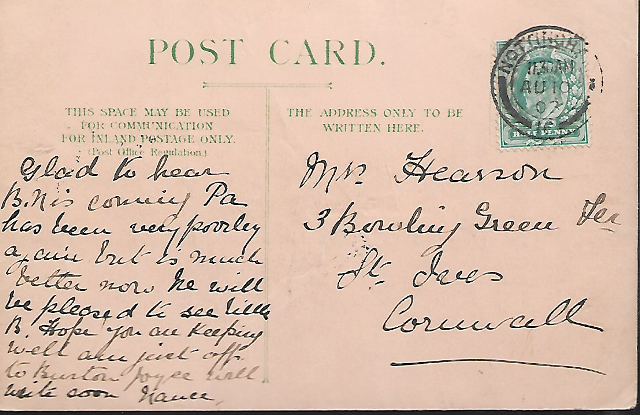 POST CARD.
THIS SPACE MAY BE USED
FOR COMMUNICATION
FOR INLAND POSTAGE ONLY.
(Post Office Regulation.)
THE ADDRESS ONLY TO BE
WRITTEN HERE.
NOTTINGHA
AU 10
HALF PENNY
Glad to hear
B.N is coming Pa
has been very poorley
again but is much
better now he will
be pleased to see little
B. Hope you are keeping
well am just off
to Burton Joyce will
write soon Nance.
Mrs Hearson
3 Bowling Green Ter
St. Ives
Cornwall